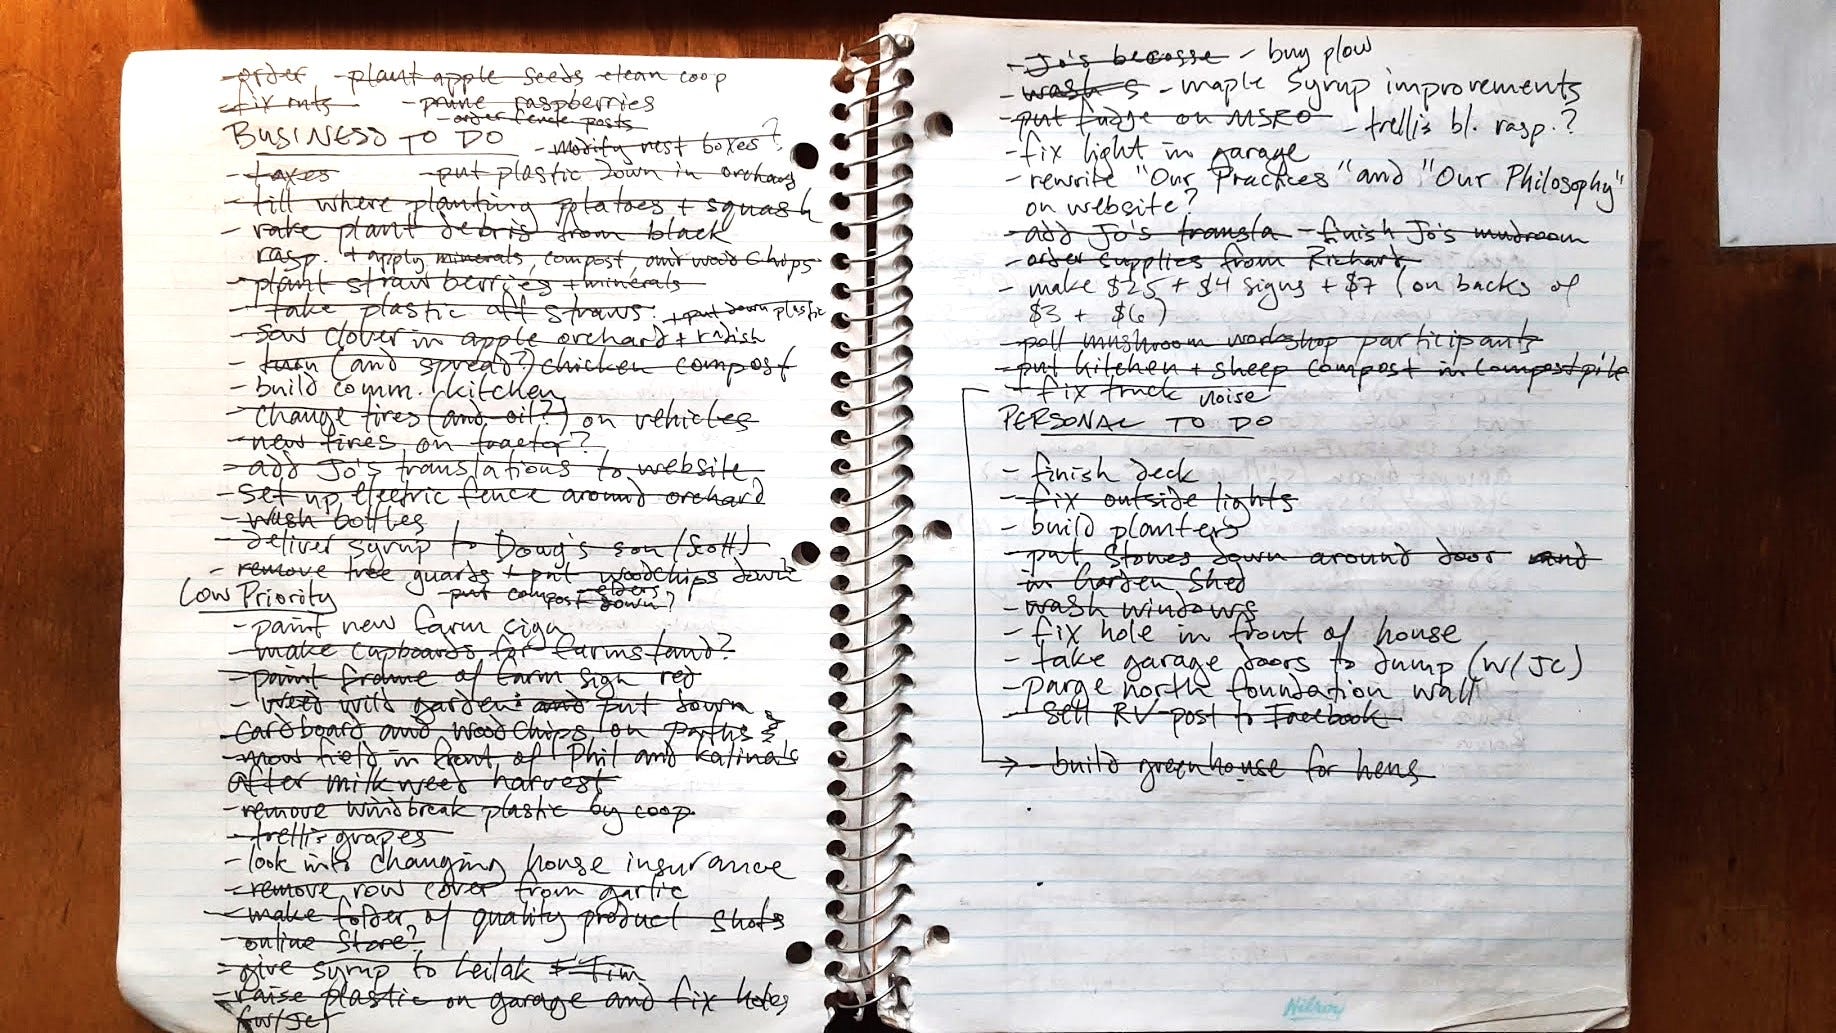 - order - plant apple seeds - clean coop
- fix ruts - prune raspberries
- order fence posts
BUSINESS TO DO - modify nest boxes?
- taxes - put plastic down in orchard
- till where planting potatoes + squash
- rake plant debris from black
rasp. + apply minerals, compost, and wood chips
- plant strawberries + minerals
- take plastic off straws. + put down plastic
- sow clover in apple orchard + radish
- turn (and spread?) chicken compost
- build comm. kitchen
- change tires (and oil?) on vehicles
- new tires on tractor?
- add Jo's translations to website
- set up electric fence around orchard
- wash bottles
- deliver syrup to Doug's son (Scott)
- remove tree guards + put woodchips down
- put compost down? elders
Low Priority
- paint new farm sign
- make cupboards for farmstand?
- paint frame of farm sign red
- weed wild garden and put down
cardboard and woodchips on paths
- mow field in front of Phil and Kalina's
after milkweed harvest
- remove windbreak plastic by coop
- trellis grapes
- look into changing house insurance
- remove row cover from garlic
- make folder of quality product shots
- online store?
- give syrup to Leilak + Tim
- raise plastic on garage and fix holes
(w/JC)
- Jo's becosse - buy plow
- wash s - maple syrup improvements
- put fudge on MSRO - trellis bl. rasp.?
- fix light in garage
- rewrite "Our Practices" and "Our Philosophy"
on website?
- add Jo's transla - finish Jo's mudroom
- order supplies from Richard
- make $25 + $4 signs + $7 (on backs of
$3 + $6)
- poll mushroom workshop participants
- put kitchen + sheep compost in compost pile
- fix truck noise
PERSONAL TO DO
- finish deck
- fix outside lights
- build planters
- put stones down around door and
in Garden Shed
- wash windows
- fix hole in front of house
- take garage doors to dump (w/JC)
- parge north foundation wall
- sell RV-post to Facebook
→ - build greenhouse for hens
Hilroy